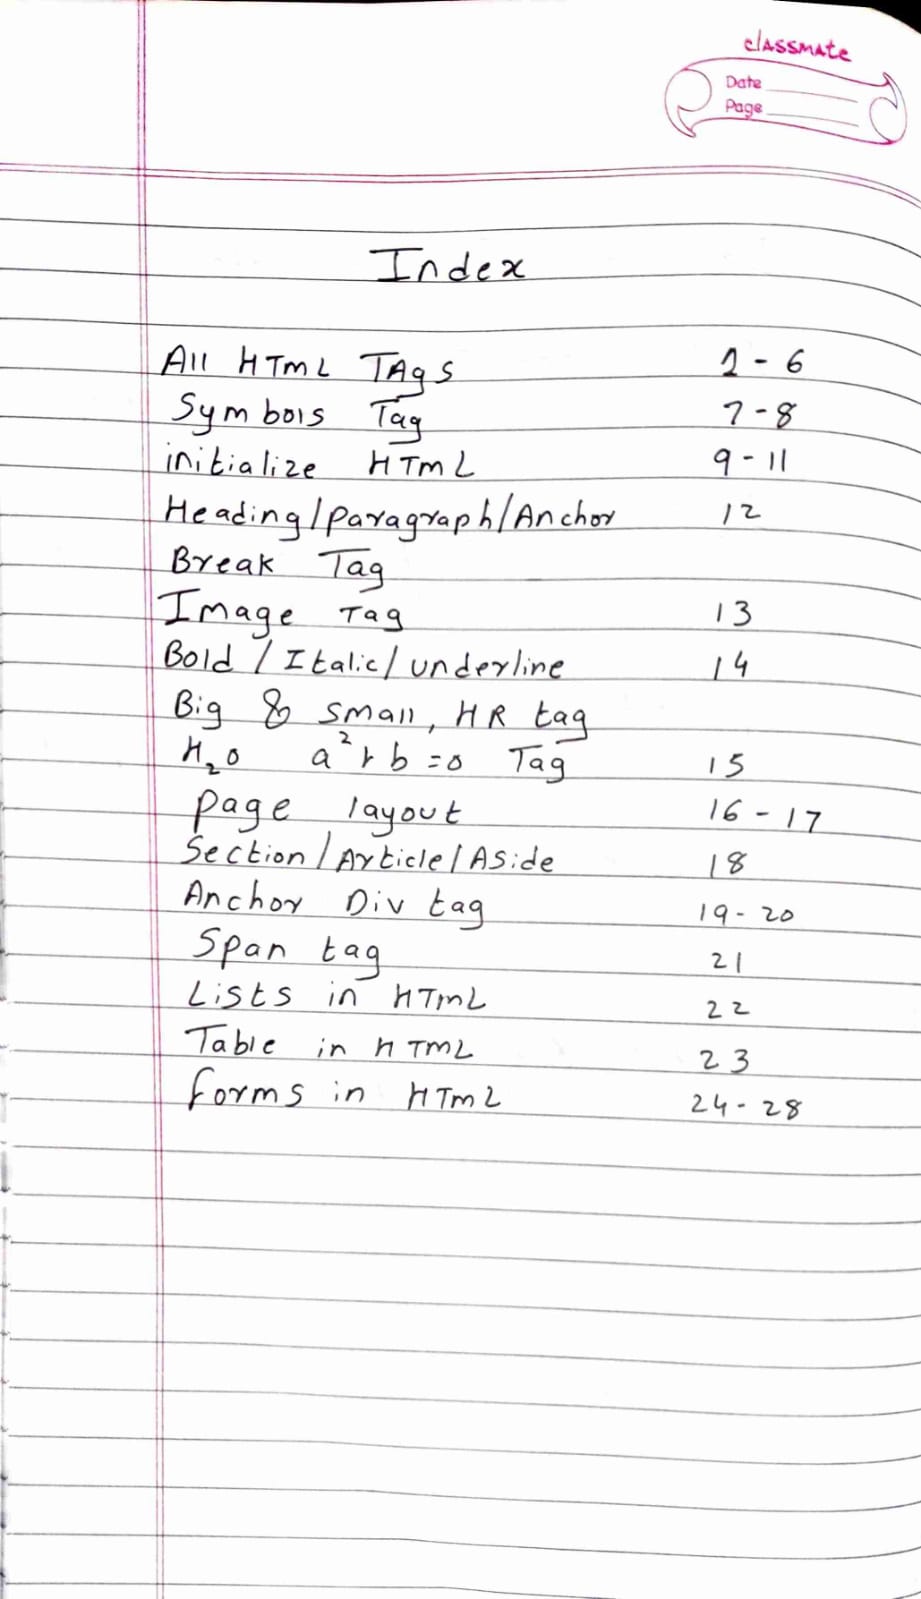 classmate
Date
Page
Index
All HTML TAgS 1 - 6
Symbols Tag 7-8
initialize HTML 9-11
Heading/paragraph/Anchor 12
Break Tag
Image Tag 13
Bold / Italic/underline 14
Big & small, HR tag
H₂O a²+b=0 Tag 15
page layout 16 - 17
Section/Article/Aside 18
Anchor Div tag 19-20
Span tag 21
Lists in HTML 22
Table in HTML 23
forms in HTML 24-28